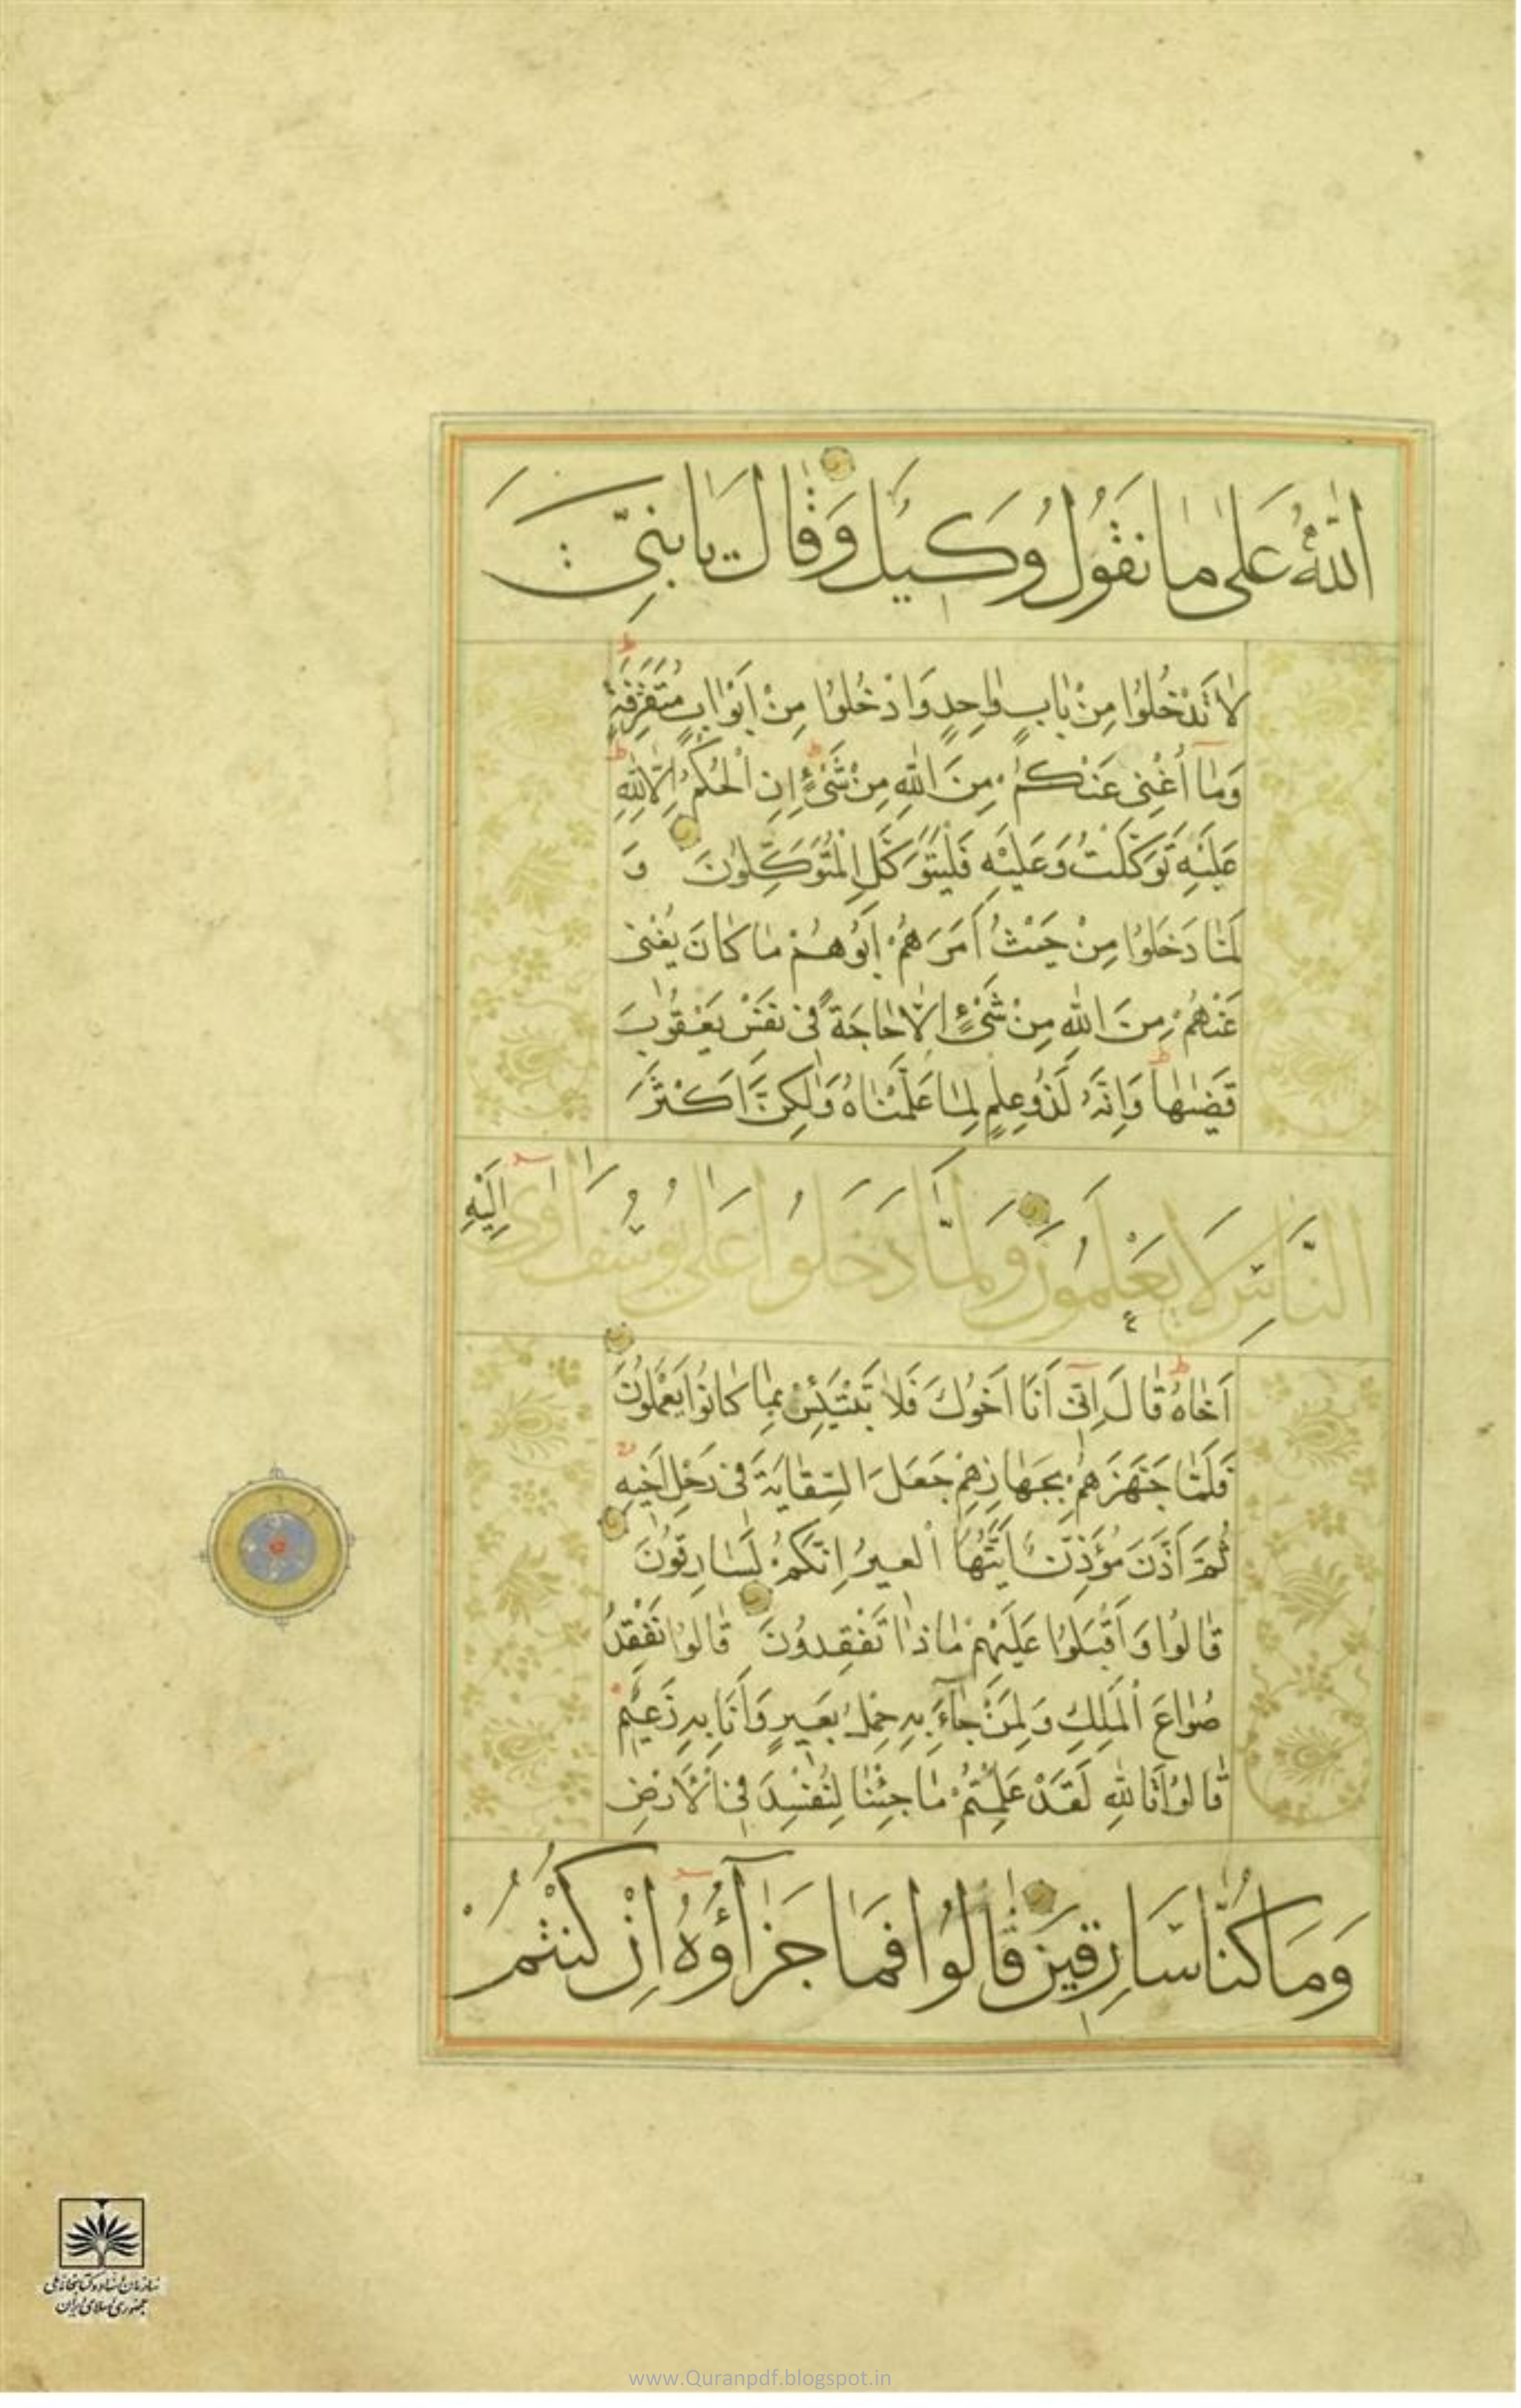 اللّٰهُ عَلىٰ مٰا نَقُولُ وَكيلٌ وَقٰالَ يٰا بَنِيَّ
لٰا تَدْخُلُوا مِنْ بٰابٍ وٰاحِدٍ وَادْخُلُوا مِنْ اَبْوٰابٍ مُتَفَرِّقَةٍ
وَمٰٓا اُغْنِى عَنْكُمْ مِنَ اللّٰهِ مِنْ شَیْءٍ اِنِ الْحُكْمُ اِلّٰا لِلّٰهِ
عَلَيْهِ تَوَكَّلْتُ وَعَلَيْهِ فَلْيَتَوَكَّلِ الْمُتَوَكِّلُونَ وَ
لَمّٰا دَخَلُوا مِنْ حَيْثُ اَمَرَهُمْ اَبُوهُمْ مٰا كٰانَ يُغْنى
عَنْهُمْ مِنَ اللّٰهِ مِنْ شَیْءٍ اِلّٰا حٰاجَةً فى نَفْسِ يَعْقُوبَ
قَضٰىهٰا وَاِنَّهُ لَذُو عِلْمٍ لِمٰا عَلَّمْنٰاهُ وَلٰكِنَّ اَكْثَرَ
النّٰاسِ لٰا يَعْلَمُونَ وَلَمّٰا دَخَلُوا عَلىٰ يُوسُفَ اٰوىٰٓ اِلَيْهِ
اَخٰاهُ قٰالَ اِنّىٓ اَنَا اَخُوكَ فَلٰا تَبْتَئِسْ بِمٰا كٰانُوا يَعْمَلُونَ
فَلَمّٰا جَهَّزَهُمْ بِجَهٰازِهِمْ جَعَلَ السِّقٰايَةَ فى رَحْلِ اَخيهِ
ثُمَّ اَذَّنَ مُؤَذِّنٌ اَيَّتُهَا الْعيرُ اِنَّكُمْ لَسٰارِقُونَ
قٰالُوا وَاَقْبَلُوا عَلَيْهِمْ مٰاذٰا تَفْقِدُونَ قٰالُوا نَفْقِدُ
صُوٰاعَ الْمَلِكِ وَلِمَنْ جٰٓاءَ بِهِ حِمْلُ بَعيرٍ وَاَنَا بِهِ زَعيمٌ
قٰالُوا تَاللّٰهِ لَقَدْ عَلِمْتُمْ مٰا جِئْنٰا لِنُفْسِدَ فِى الْاَرْضِ
وَمٰا كُنّٰا سٰارِقينَ قٰالُوا فَمٰا جَزٰٓاؤُهُٓ اِنْ كُنْتُمْ
سازمان اسناد و کتابخانه ملی
جمهوری اسلامی ایران
www.Quranpdf.blogspot.in